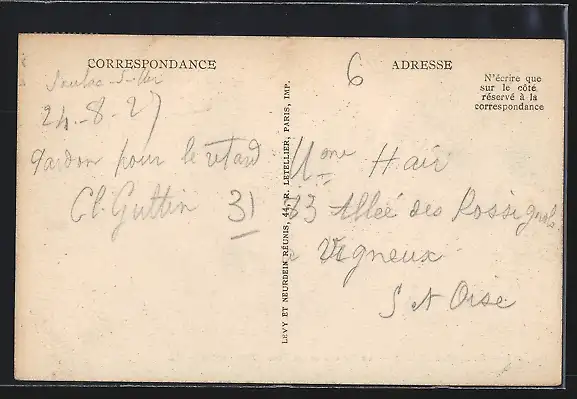 CORRESPONDANCE
Soulac-S-Mer
24-8-27
Pardon pour le retard
Cl. Guttin 31
LEVY ET NEURDEIN RÉUNIS, 44, R. LETELLIER, PARIS, IMP.
6
ADRESSE
N'écrire que
sur le côté
réservé à la
correspondance
Mme Hair
33 Allée des Rossignols
à Vigneux
S et Oise